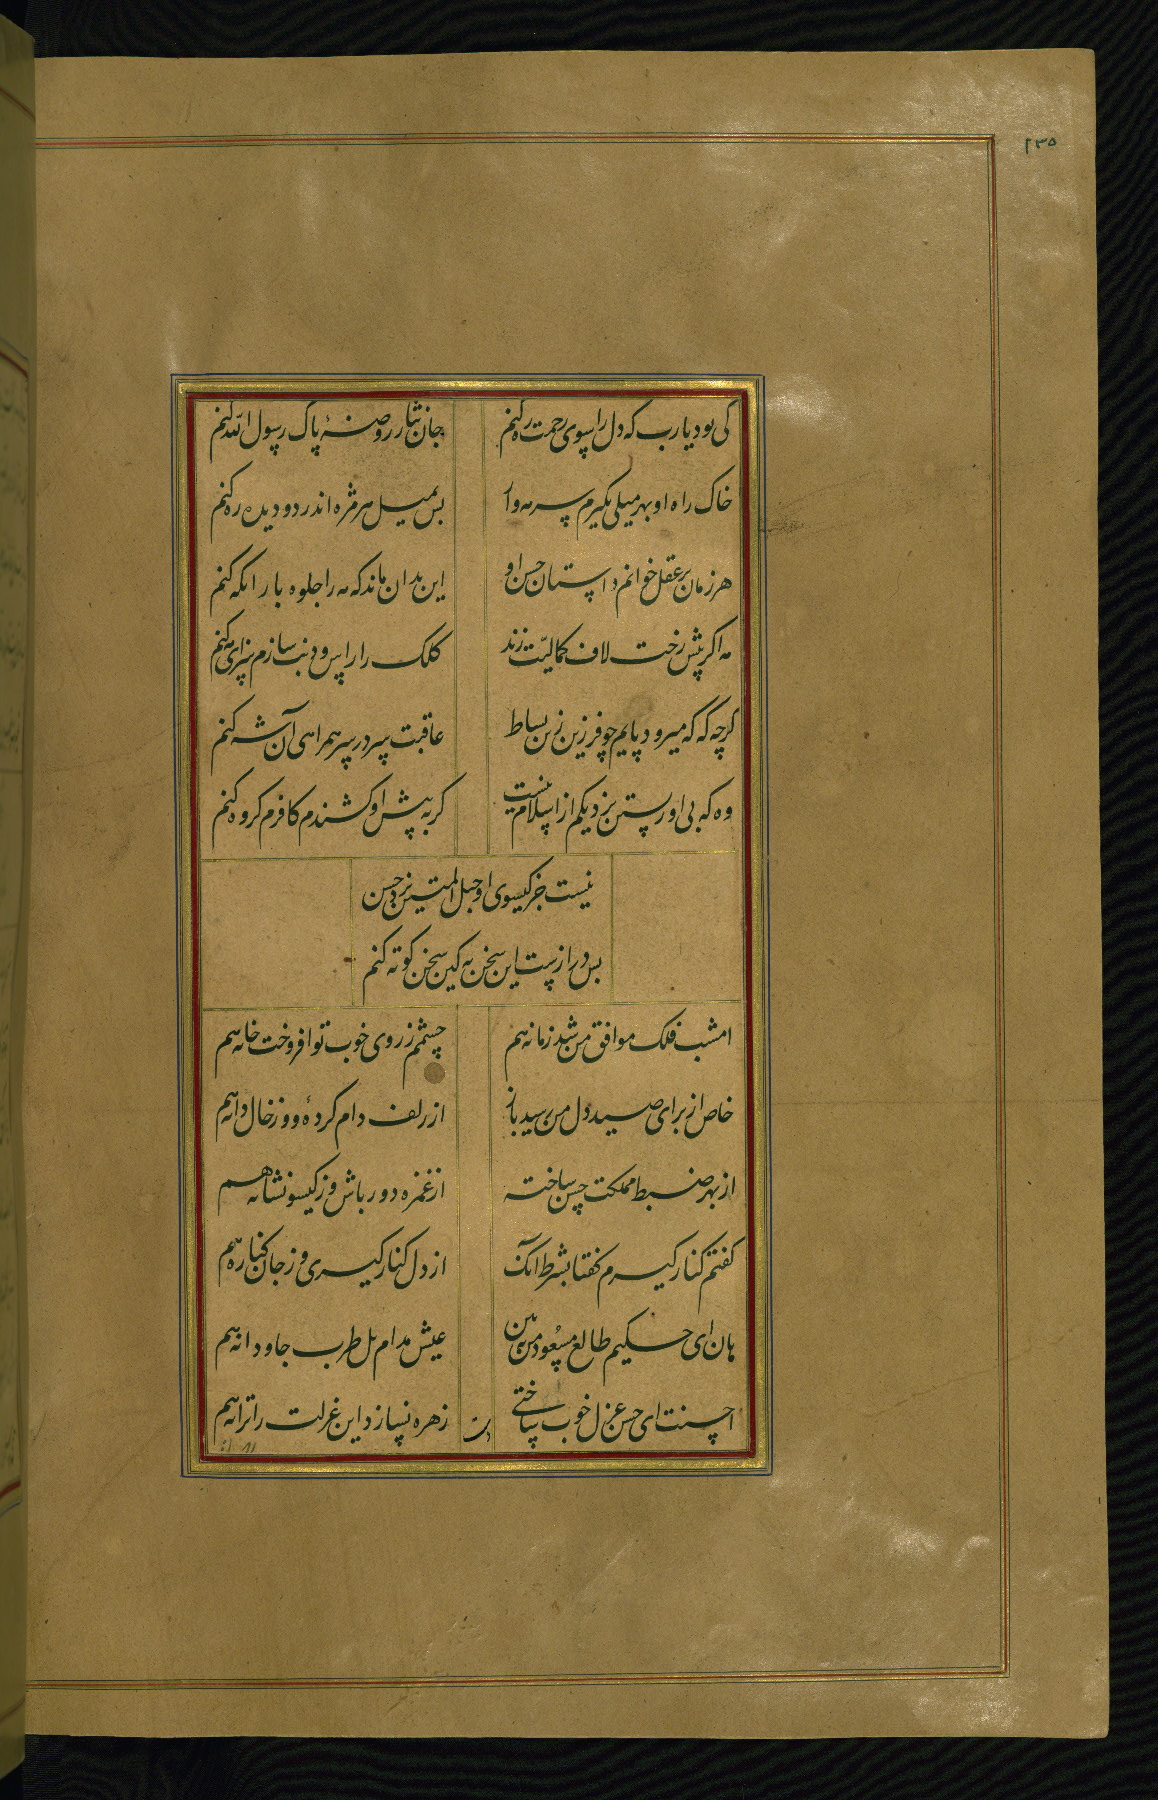 ۲۳۵
کی بود یارب که دل را سوی رحمت ره کنم جان نثار روضهٔ پاک رسول الله کنم
خاک راه او بهر میلی بگیرم سرمه وار بس بمیل هر مژه اندر دو دیده ره کنم
هر زمان بر عقل خوانم داستان حسن او این بدان ماند که مه را جلوه با را
مه اگر پیش رخت لاف کمالیت زند کلک را راس و ذنب سازم سزای مه کنم
گرچه که که میرود پایم چو فرزین زین بساط عاقبت سر در سر همراهی آن شه کنم
وه که بی او زیستن نزدیکم از اسلام نیست گر به پیش او کشندم کافرم گر وه کنم
نیست جز گیسوی او حبل المتین نزد حسن
بس درازست این سخن به کین سخن کوته کنم
امشب فلک موافق من شد زمانه هم چشمم ز روی خوب تو افروخت خانه هم
خاص از برای صید دل من رسید باز از زلف دام کردهٔ و وز خال دانه هم
از بهر ضبط مملکت حسن ساخته از غمزه دور باش و ز گیسو نشانه هم
گفتم کنار گیرم گفتا بشرط آنک از دل کنار گیری و ز جان کناره هم
هان ای حکیم طالع مسعود من ببین عیش مدام بل طرب جاودانه هم
احسنت ای حسن غزل خوب ساختی زهره بسازد این غزلت را ترانه هم